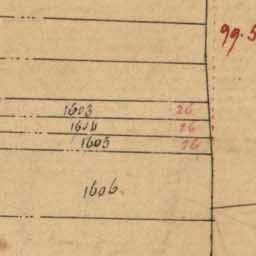 99.5
1603 26
1604 26
1605 26
1606.